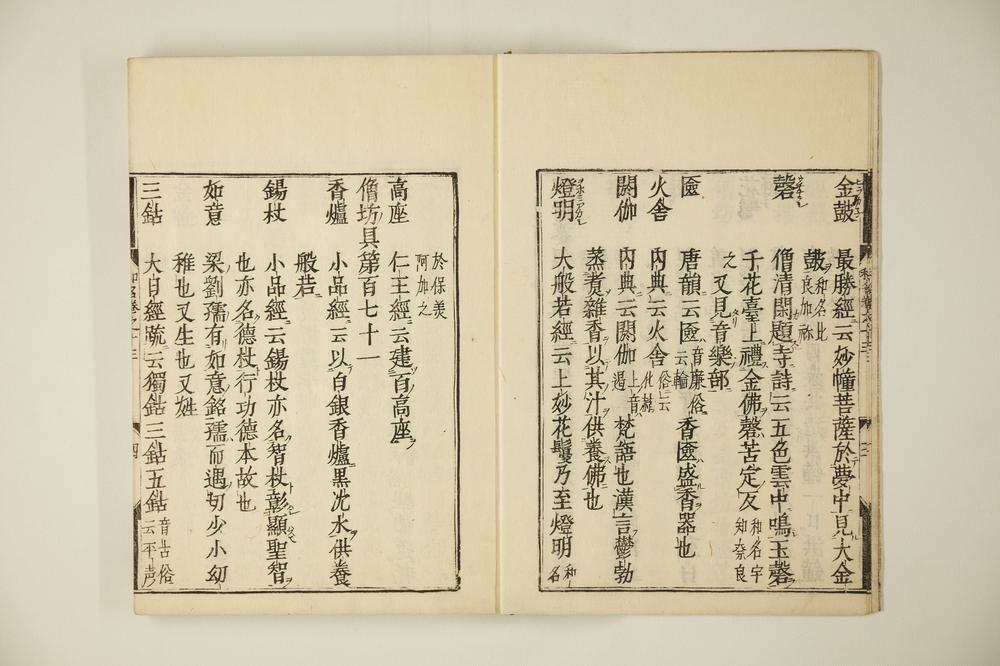 金鼓 最勝經云妙幢菩薩於夢中見大金
鼓和名比良加祢
磬 僧清閑題寺詩云五色雲中鳴玉磬
千花臺上禮金佛磬苦定反和名宇知奈良
之又見音樂部
匳 唐韻云匳音廉俗云輪香匳盛香器也
火舎 內典云火舎俗云化赭
閼伽 內典云閼伽上音遏梵語也漢言鬱勃
蒸煮雜香以其汁供養佛也
燈明 大般若經云上妙花鬘乃至燈明和名
於保美阿加之
高座 仁王經云建百高座
僧坊具第百七十一
香爐 小品經云以白銀香爐黒沈水供養
般若
錫杖 小品經云錫杖亦名智杖彰顯聖智
也亦名德杖行功德本故也
如意 梁劉孺有如意銘孺而遇切少小幼
稚也又生也又姓
三鈷 大日經䟽云獨鈷三鈷五鈷音古俗云平声